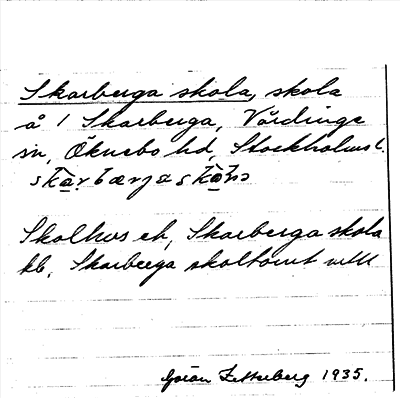 Skarberga skola, skola
å 1 Skarberga, Vårdinge
sn, Öknebo hd, Stockholms l.
Skolhus ek, Skarberga skola
kb, Skarberga skoltomt
Göran Zetterberg 1935.